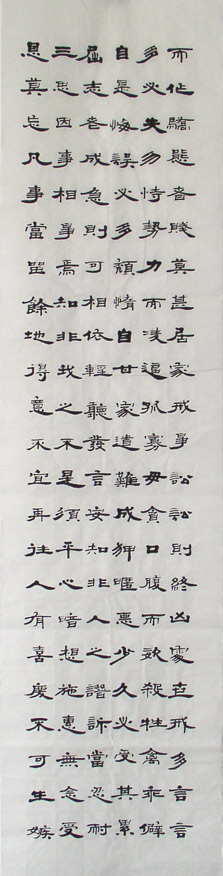 而作驕態者賤莫甚居家戒爭訟訟則終凶處世戒多言言
多必失勿恃勢力而凌逼孤寡毋貪口腹而恣殺牲禽乖僻
自是悔誤必多頹惰自甘家道難成狎暱惡少久必受其累
屈志老成急則可相依輕聽發言安知非人之譖訴當忍耐
三思因事相爭焉知非我之不是須平心暗想施惠無念受
恩莫忘凡事當留餘地得意不宜再往人有喜慶不可生嫉